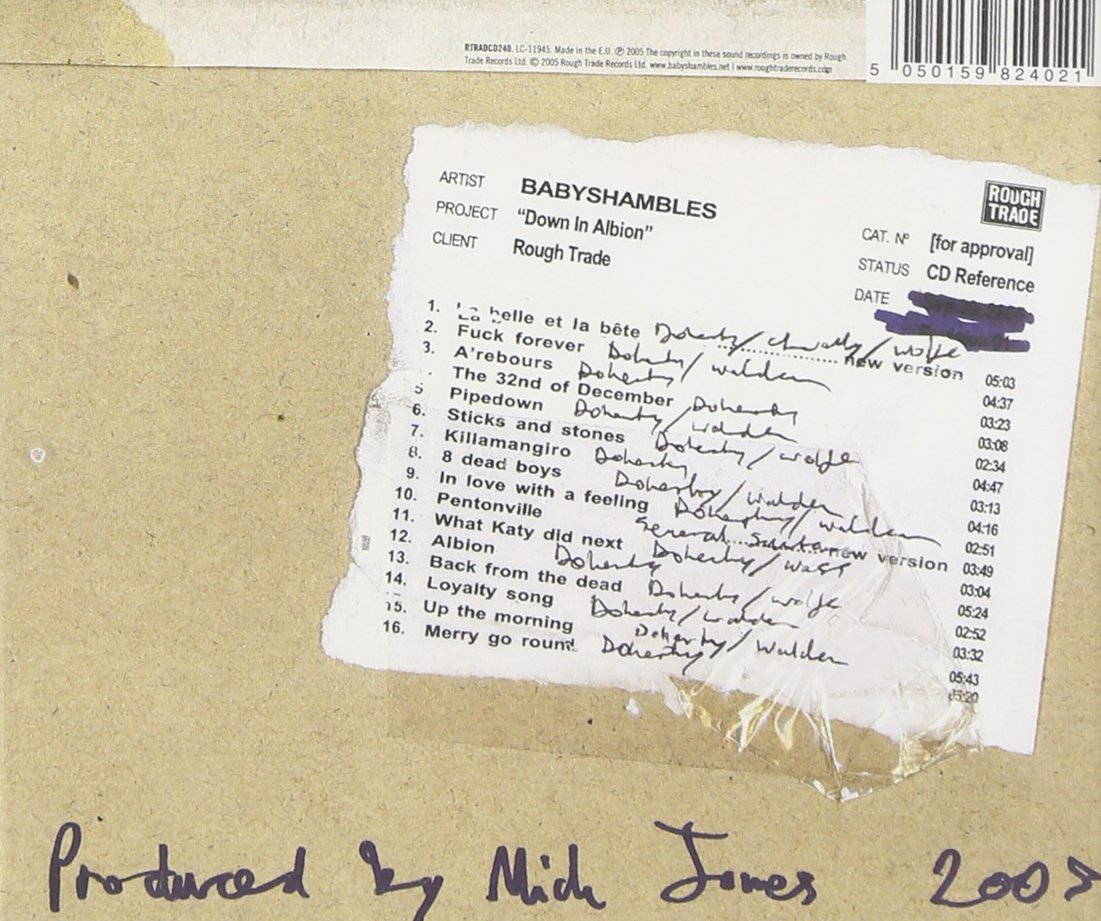 RTRADCD240. LC-11945. Made in the E.U. ℗ 2005 The copyright in these sound recordings is owned by Rough
Trade Records Ltd. © 2005 Rough Trade Records Ltd. www.babyshambles.net | www.roughtraderecords.com
5 050159 824021
ROUGH
TRADE
ARTIST BABYSHAMBLES
PROJECT “Down In Albion”
CLIENT Rough Trade
CAT. Nº [for approval]
STATUS CD Reference
DATE
1. La belle et la bête Doherty/ chevalley/ wolfe 05:03
2. Fuck forever Doherty/ walden ........... new version 04:37
3. A'rebours Doherty/ walden 03:23
The 32nd of December Doherty 03:08
5 Pipedown Doherty/walden 02:34
6. Sticks and stones Doherty/wolfe 04:47
7. Killamangiro Doherty 03:13
8. 8 dead boys Doherty/walden 04:16
9. In love with a feeling Doherty/ walden 02:51
10. Pentonville General ... new version 03:49
11. What Katy did next Doherty/ 03:04
12. Albion Doherty 05:24
13. Back from the dead Doherty/wolfe 02:52
14. Loyalty song Doherty/walden 03:32
15. Up the morning Doherty/ walden 05:43
16. Merry go round Doherty 05:20
Produced by Mick Jones 2005